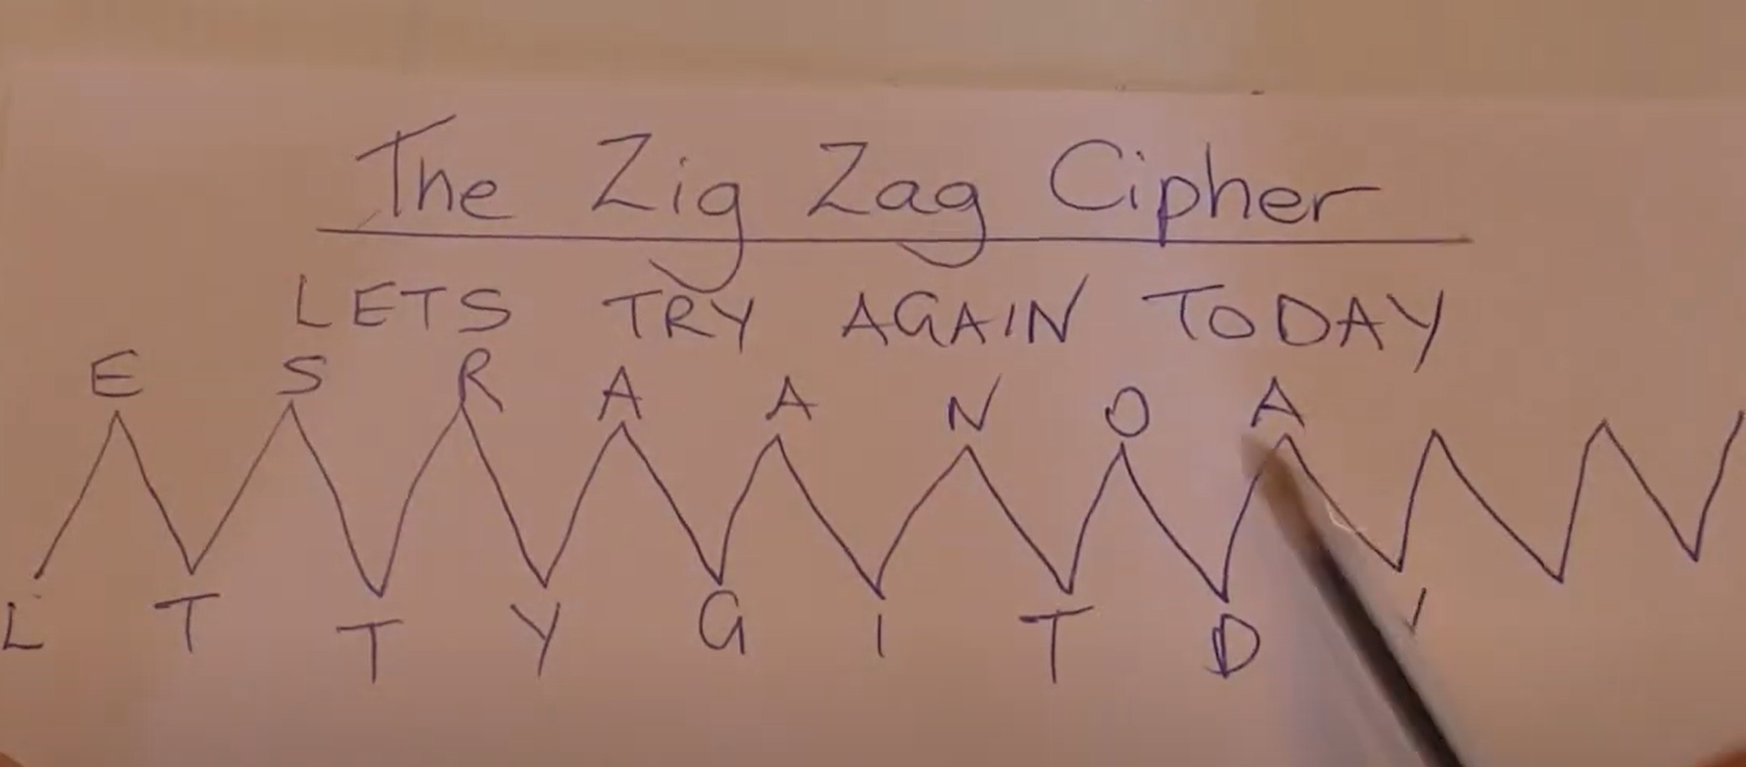 The Zig Zag Cipher
LETS TRY AGAIN TODAY
E S R A A N O A
L T T Y G I T D